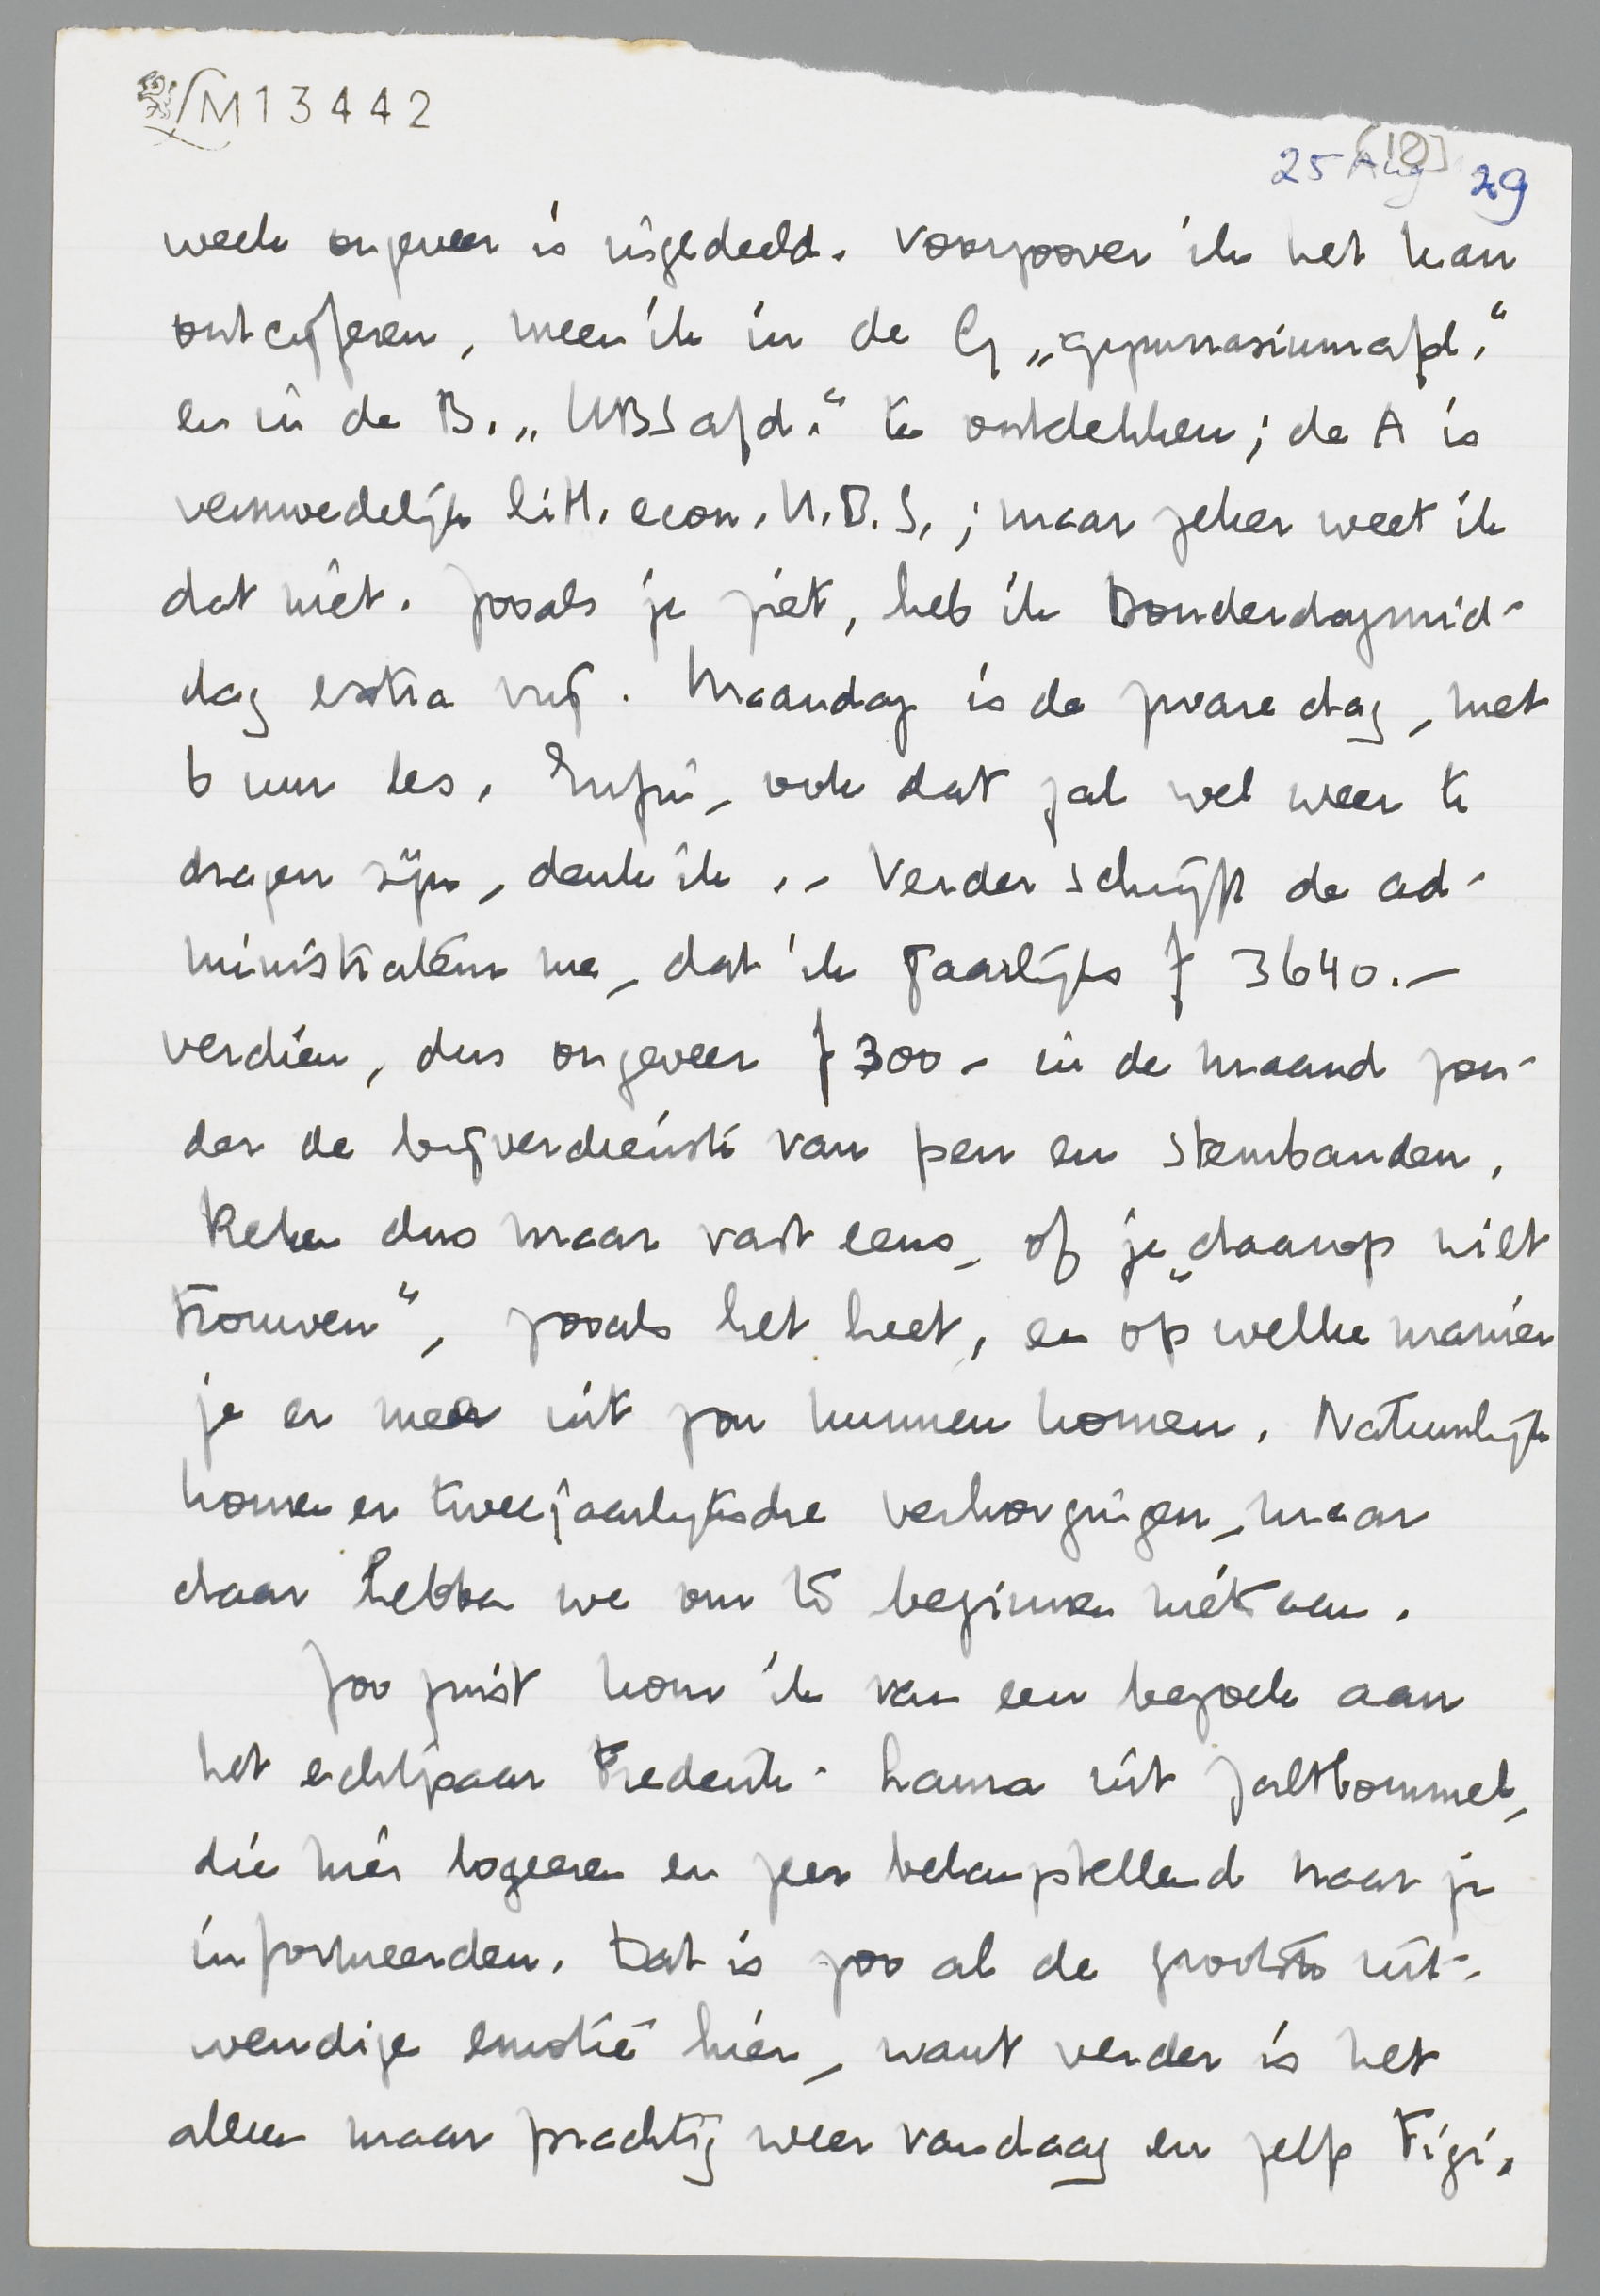 M13442
(10)
25 Aug 29
week ongeveer is ingedeeld. Voorzoover ik het kan
ontcijferen, meen ik in de G „gymnasiumafd."
en in de B. „HBS afd." te ontdekken; de A is
vermoedelijk litt. econ. H.B.S.; maar zeker weet ik
dat niet. Zooals je ziet, heb ik Donderdagmid-
dag extra vrij. Maandag is de zware dag, met
6 uur les. Enfin, ook dat zal wel weer te
dragen zijn, denk ik. – Verder schrijft de ad-
ministrateur me, dat ik jaarlijks f 3640.–
verdien, dus ongeveer f 300 – in de maand zon-
der de bijverdienste van pen en stembanden.
Reken dus maar vast eens, of je „daarop wilt
trouwen", zooals het heet, en op welke manier
je er meer uit zou kunnen komen. Natuurlijk
komen er tweejaarlijksche verhoogingen, maar
daar hebben we om te beginnen niets aan.
Zoo juist kom ik van een bezoek aan
het echtpaar Frederik-Laura uit Zaltbommel,
die hier logeeren en zeer belangstellend naar je
informeerden. Dat is zoo al de grootste uit-
wendige emotie hier, want verder is het
alleen maar prachtig weer vandaag en zelfs Figi,